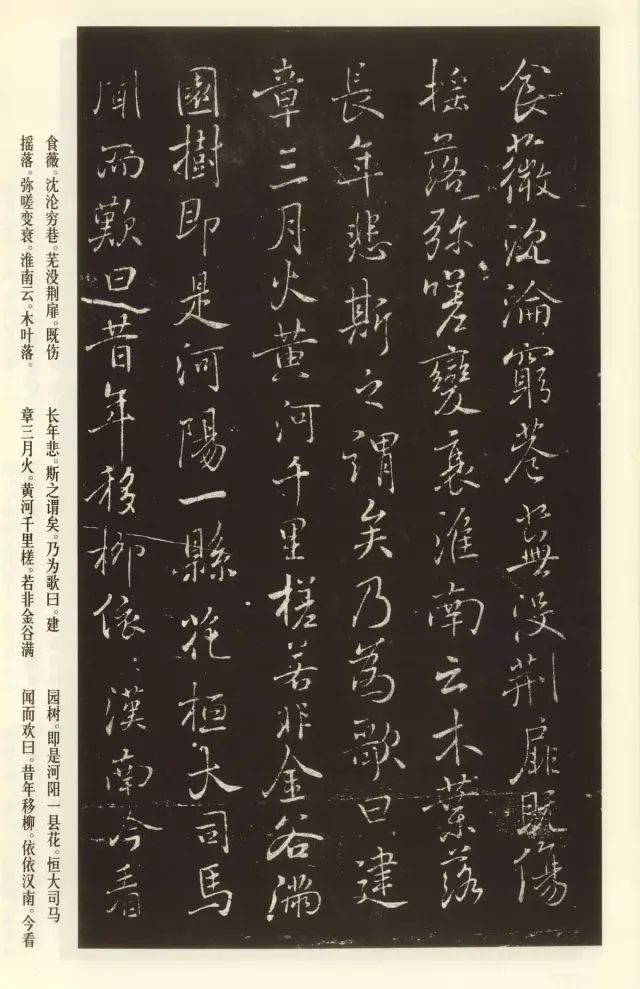 食薇沈淪窮巷蕪没荆扉既傷
搖落弥嗟變衰淮南云木葉落
長年悲斯之謂矣乃為歌曰建
章三月火黄河千里槎若非金谷滿
園樹即是河陽一縣花桓大司馬
聞而歎曰昔年移柳依〻漢南今看
食薇。沈沦穷巷。芜没荆扉。既伤
摇落。弥嗟变衰。淮南云。木叶落。
长年悲。斯之谓矣。乃为歌曰。建
章三月火。黄河千里槎。若非金谷满
园树。即是河阳一县花。恒大司马
闻而欢曰。昔年移柳。依依汉南。今看